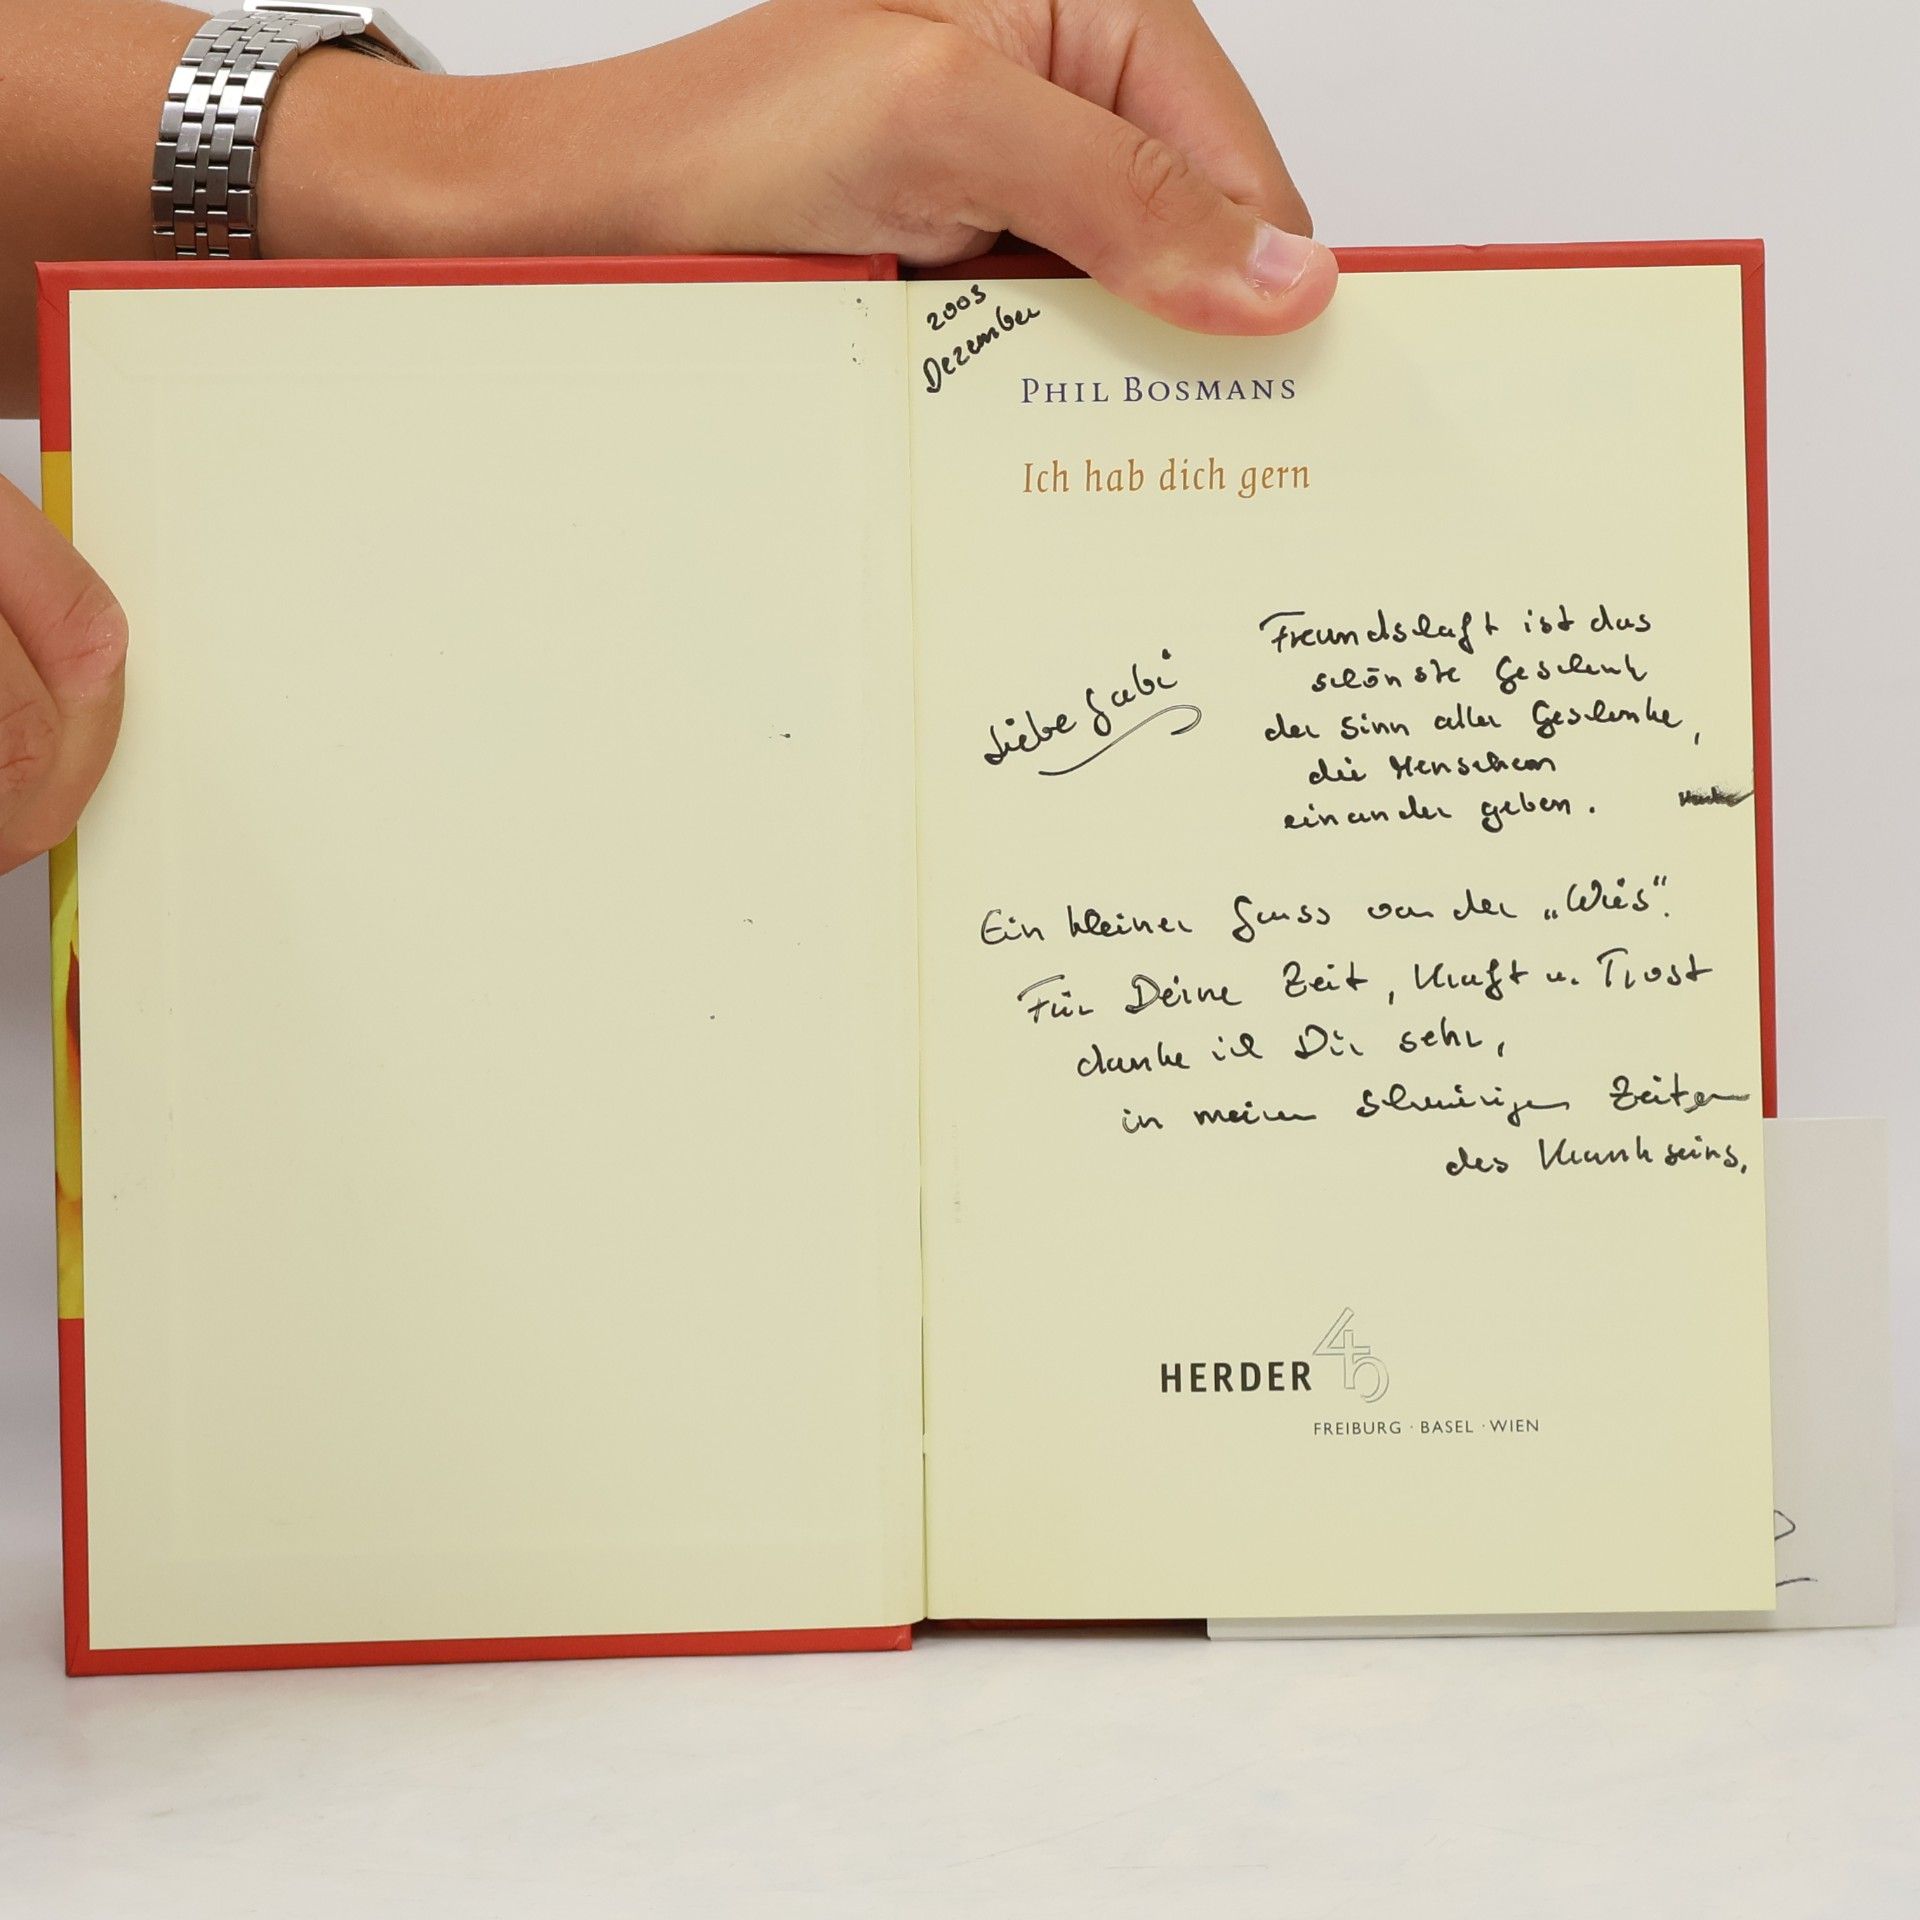 2003
Dezember
PHIL BOSMANS
Ich hab dich gern
Liebe Gabi
Freundschaft ist das
schönste Geschenk
der Sinn aller Geschenke,
die Menschen
einander geben.
Ein kleiner Gruss von der „Wies".
Für Deine Zeit, Kraft u. Trost
danke ich Dir sehr,
in meinen schwierigen Zeiten
des Krankseins,
HERDER
FREIBURG · BASEL · WIEN